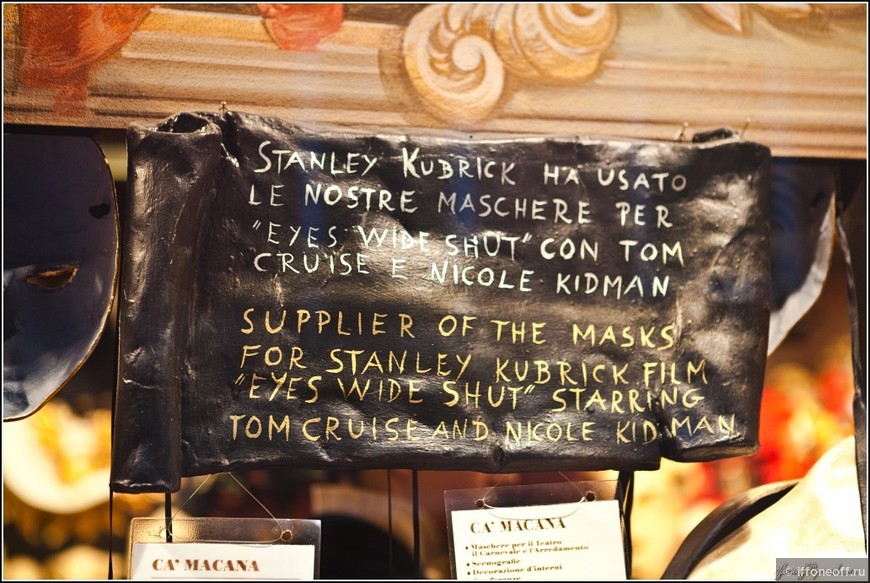 STANLEY KUBRICK HA USATO
LE NOSTRE MASCHERE PER
"EYES WIDE SHUT" CON TOM
CRUISE E NICOLE KIDMAN
SUPPLIER OF THE MASKS
FOR STANLEY KUBRICK FILM
"EYES WIDE SHUT" STARRING
TOM CRUISE AND NICOLE KIDMAN
CA' MACANA
CA' MACANA
• Maschere per il Teatro
il Carnevale e l'Arredamento
• Scenografie
• Decorazione d'interni
© iffoneoff.ru